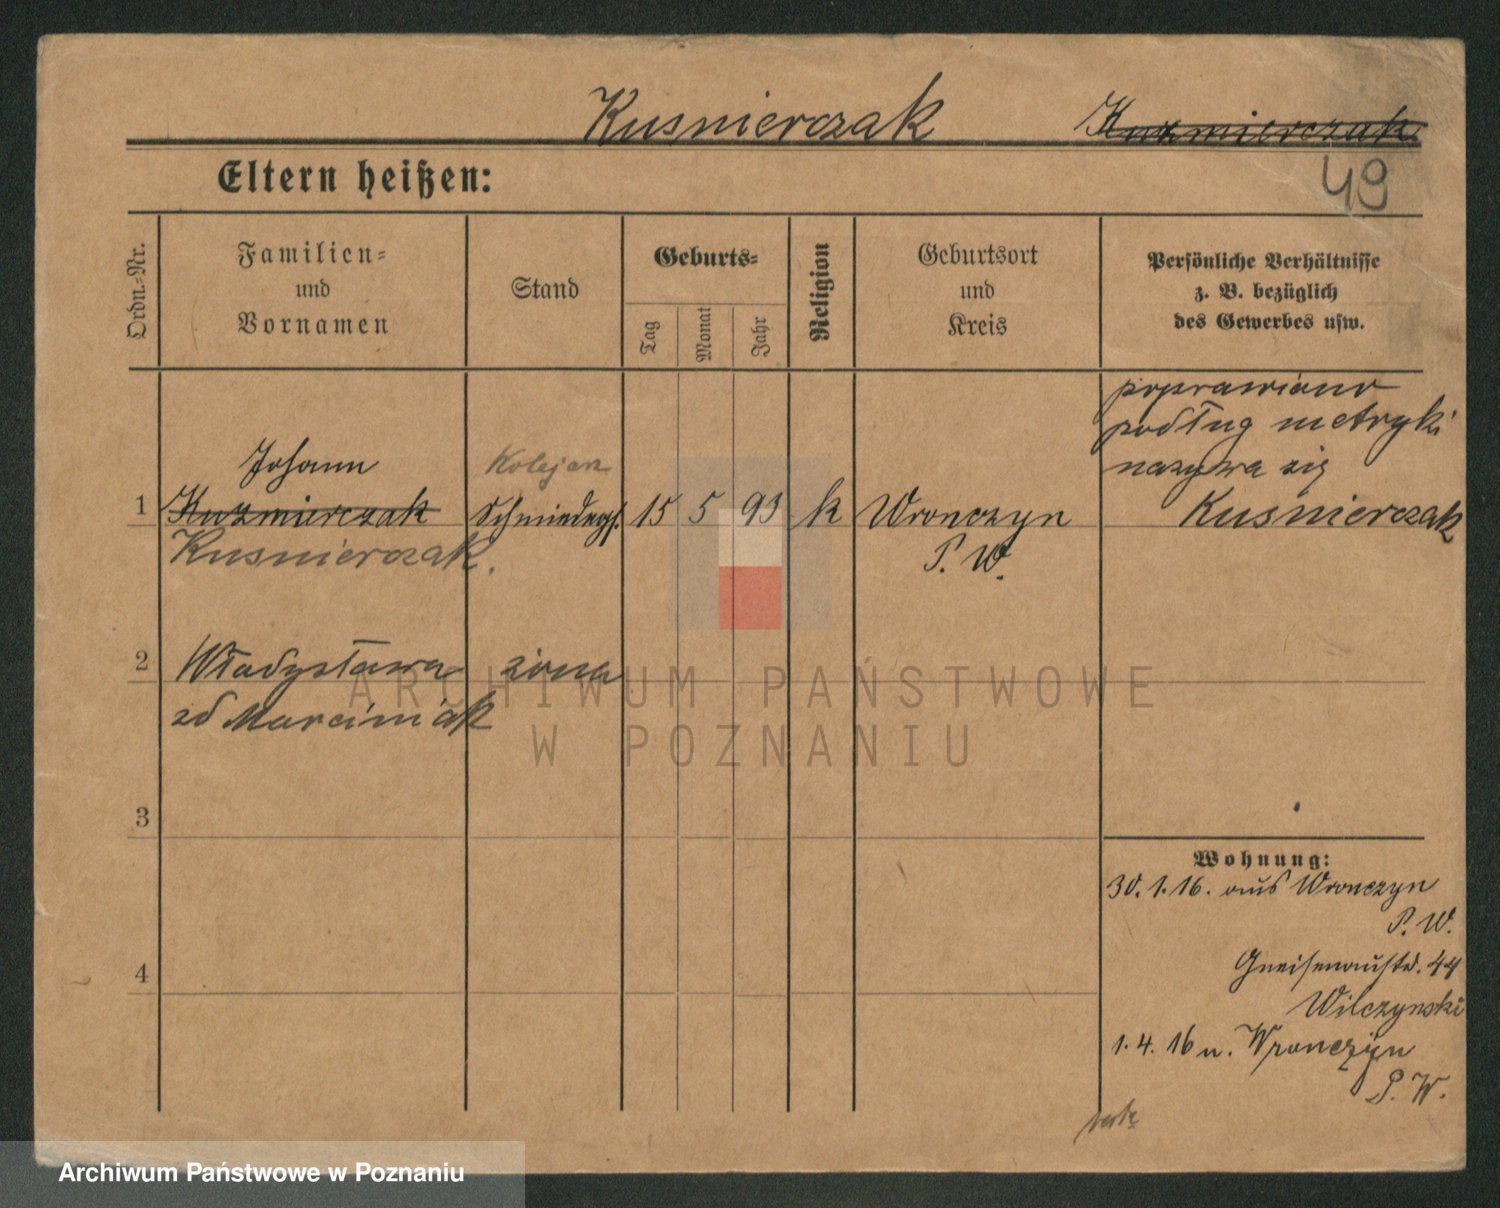 Kusnierczak Kuzmierczak
49
Eltern heißen:
Ordn.-Nr.
Familien-
und
Vornamen
Stand
Geburts-
Tag
Monat
Jahr
Religion
Geburtsort
und
Kreis
Persönliche Verhältnisse
z. B. bezüglich
des Gewerbes usw.
poprawiono
podług metryki
nazywa się
Kusnierczak
Johann
Kolejarz
1 Kuzmierczak Schmiedegs. 15 5 93 k Wronczyn
Kusnierczak.
P. W.
2 Władysława żona
zd Marciniak
3
4
Wohnung:
30. 1. 16. aus Wronczyn
P. W.
Gneisenaustr. 44
Wilczynski
1. 4. 16 n. Wronczyn
P. W.
ARCHIWUM PAŃSTWOWE
W POZNANIU
Archiwum Państwowe w Poznaniu